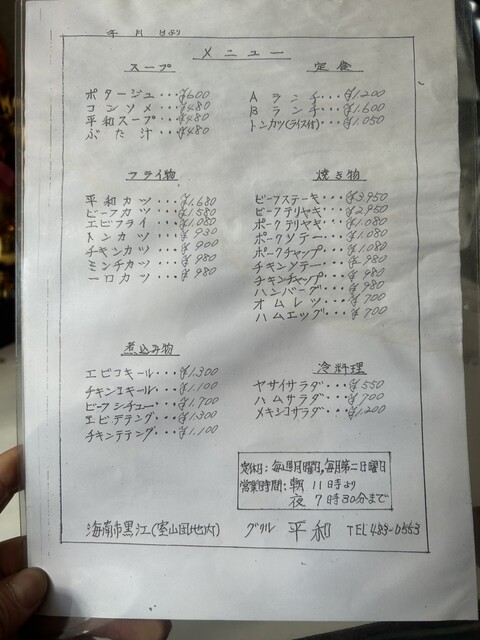 年 月 日より
メニュー
スープ
ポタージュ・・・¥600
コンソメ・・・¥480
平和スープ・・・¥480
ぶた汁・・・¥480
定食
Aランチ・・・¥1.200
Bランチ・・・¥1.600
トンカツ(ライス付)・・・¥1.050
フライ物
平和カツ・・・¥1.680
ビーフカツ・・・¥1.580
エビフライ・・・¥1.080
トンカツ・・・¥930
チキンカツ・・・¥900
ミンチカツ・・・¥980
一口カツ・・・¥980
焼き物
ビーフステーキ・・・¥3.950
ビーフテリヤキ・・・¥2.950
ポークテリヤキ・・・¥1.080
ポークソテー・・・¥1.080
ポークチャップ・・・¥1.080
チキンソテー・・・¥980
チキンチャップ・・・¥980
ハンバーグ・・・¥980
オムレツ・・・¥700
ハムエッグ・・・¥700
煮込み物
エビコキール・・・¥1.300
チキンコキール・・・¥1.100
ビーフシチュー・・・¥1.700
エビデテング・・・¥1.300
チキンテテング・・・¥1.100
冷料理
ヤサイサラダ・・・¥550
ハムサラダ・・・¥700
メキシコサラダ・・・¥1.200
定休日:毎週月曜日,毎月第二日曜日
営業時間:朝 11時より
夜 7時30分まで
海南市黒江(室山団地内) グリル 平和 TEL 483-0553